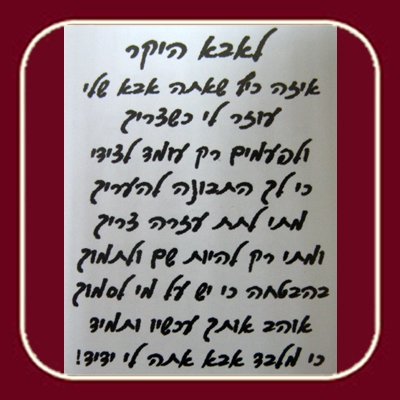 לאבא היקר
איזה כיף שאתה אבא שלי
עוזר לי כשצריך
ולפעמים רק עומד לצידי
כי לך התבונה להעריך
מתי לתת עזרה צריך
ומתי רק להיות שם ולתמוך
בהבטחה כי יש על מי לסמוך
אוהב אותך עכשיו ותמיד
כי מלבד אבא אתה לי ידיד!